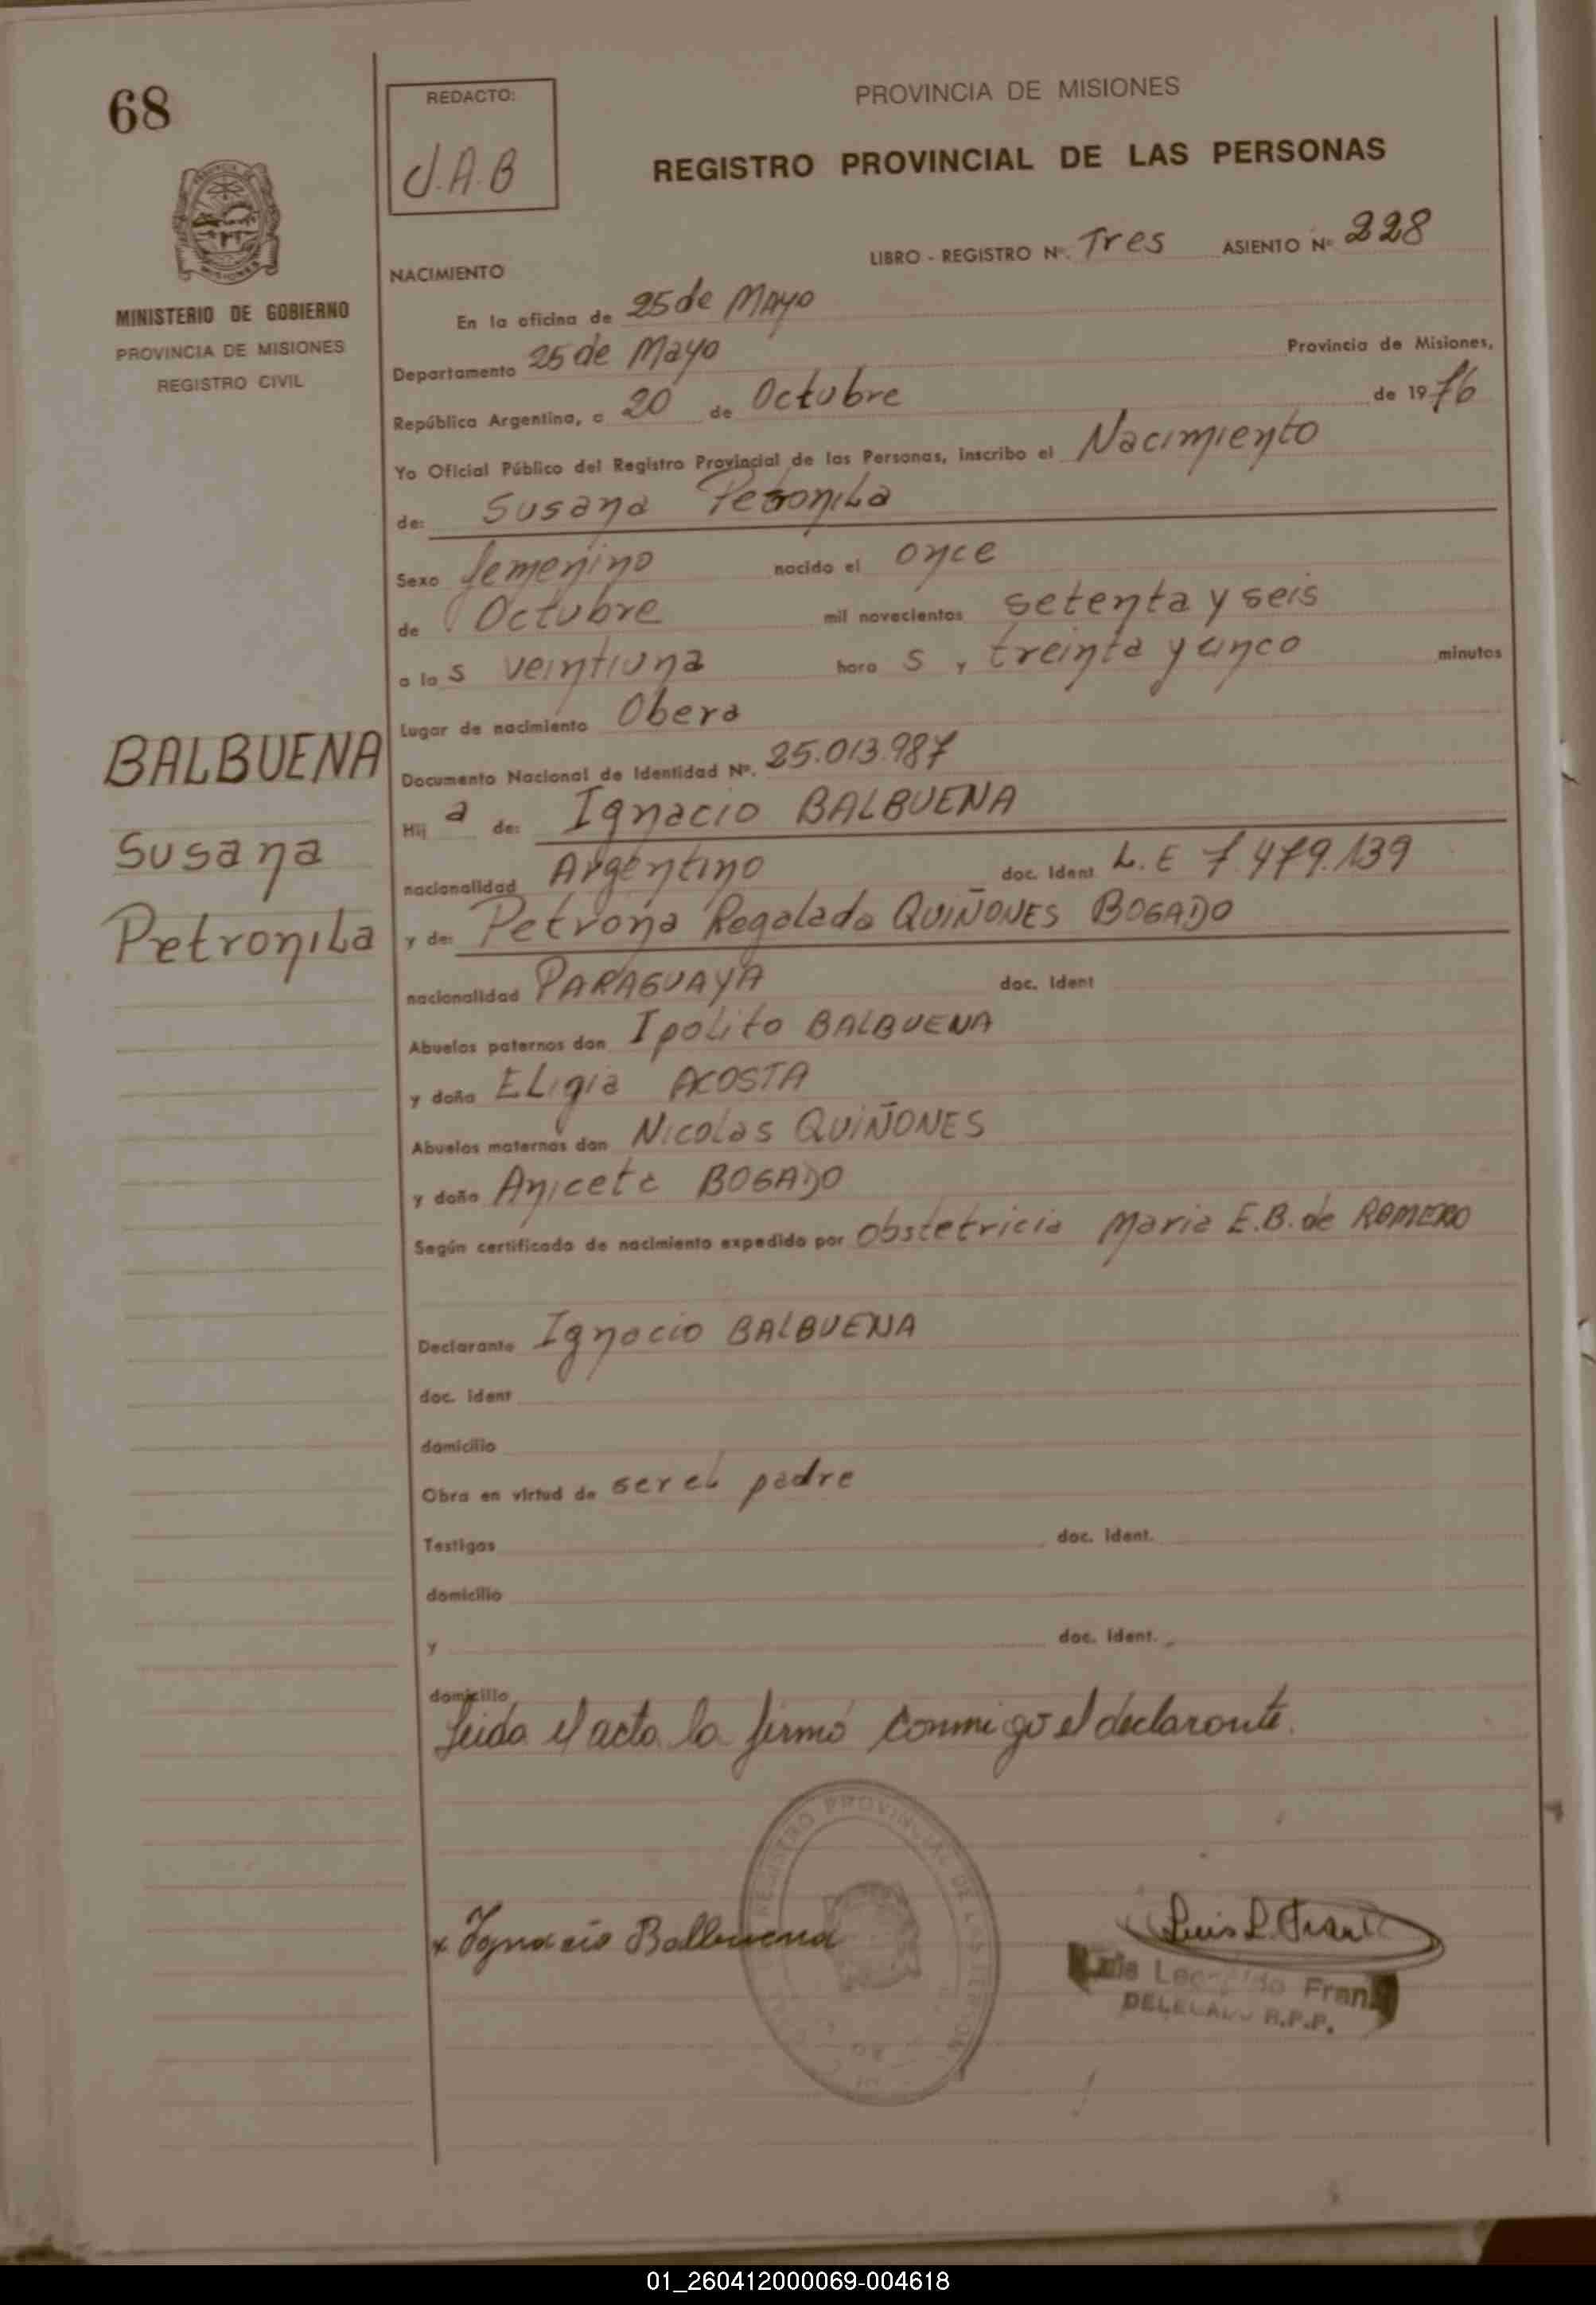 68
REDACTO:
J.A.B
PROVINCIA DE MISIONES
REGISTRO PROVINCIAL DE LAS PERSONAS
LIBRO - REGISTRO Nº. Tres ASIENTO Nº 228
MINISTERIO DE GOBIERNO
PROVINCIA DE MISIONES
REGISTRO CIVIL
NACIMIENTO
En la oficina de 25 de Mayo
Departamento 25 de Mayo Provincia de Misiones,
República Argentina, a 20 de Octubre de 1976
Yo Oficial Público del Registro Provincial de las Personas, inscribo el Nacimiento
de: Susana Petronila
Sexo femenino nacido el once
de Octubre mil novecientos setenta y seis
a las veintiuna horas, y treinta y cinco minutos
Lugar de nacimiento Obera
BALBUENA
Susana
Petronila
Documento Nacional de Identidad Nº. 25.013.987
Hija de: Ignacio BALBUENA
nacionalidad Argentino doc. Ident L.E 7.479.139
y de: Petrona Regalada QUIÑONES BOGADO
nacionalidad PARAGUAYA doc. Ident
Abuelos paternos don Ipolito BALBUENA
y doña ELigia ACOSTA
Abuelos maternos don Nicolas QUIÑONES
y doña Aniceta BOGADO
Según certificado de nacimiento expedido por Obstetricia Maria E.B. de ROMERO
Declarante Ignacio BALBUENA
doc. ident
domicilio
Obra en virtud de ser el padre
Testigos doc. Ident.
domicilio
y doc. Ident.
domicilio
Leida el acta la firmó conmigo el declarante.
REGISTRO PROVINCIAL DE LAS PERSONAS
x Ignacio Balbuena
Luis L. Frank
Luis Leopoldo Frank
DELEGADO R.P.P.
01_260412000069-004618